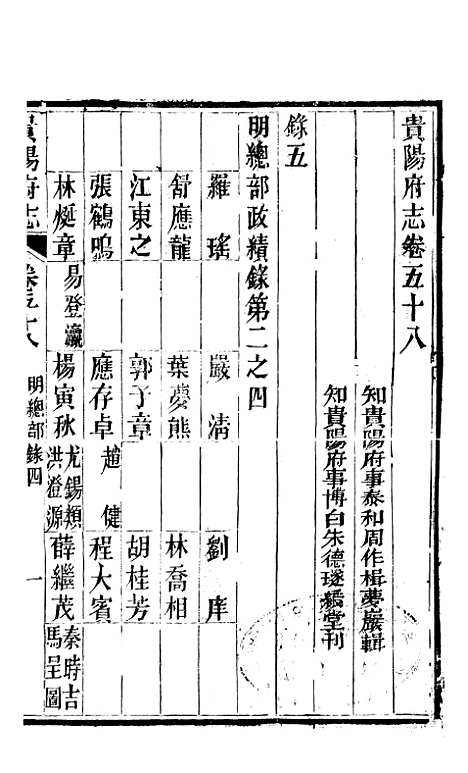 貴陽府志卷五十八
知貴陽府事泰和周作楫夢巖輯
知貴陽府事博白朱德璲綬堂刊
錄五
明總部政績錄第二之四
羅瑤 嚴清 劉庠
舒應龍 葉夢熊 林喬相
江東之 郭子章 胡桂芳
張鶴鳴 應存卓 趙健 程大賓
林烴章 易登瀛 楊寅秋 尤錫類 洪澄源 薛繼茂 秦時吉 馬呈圖
貴陽府志 卷五十八 明總部 錄四 一